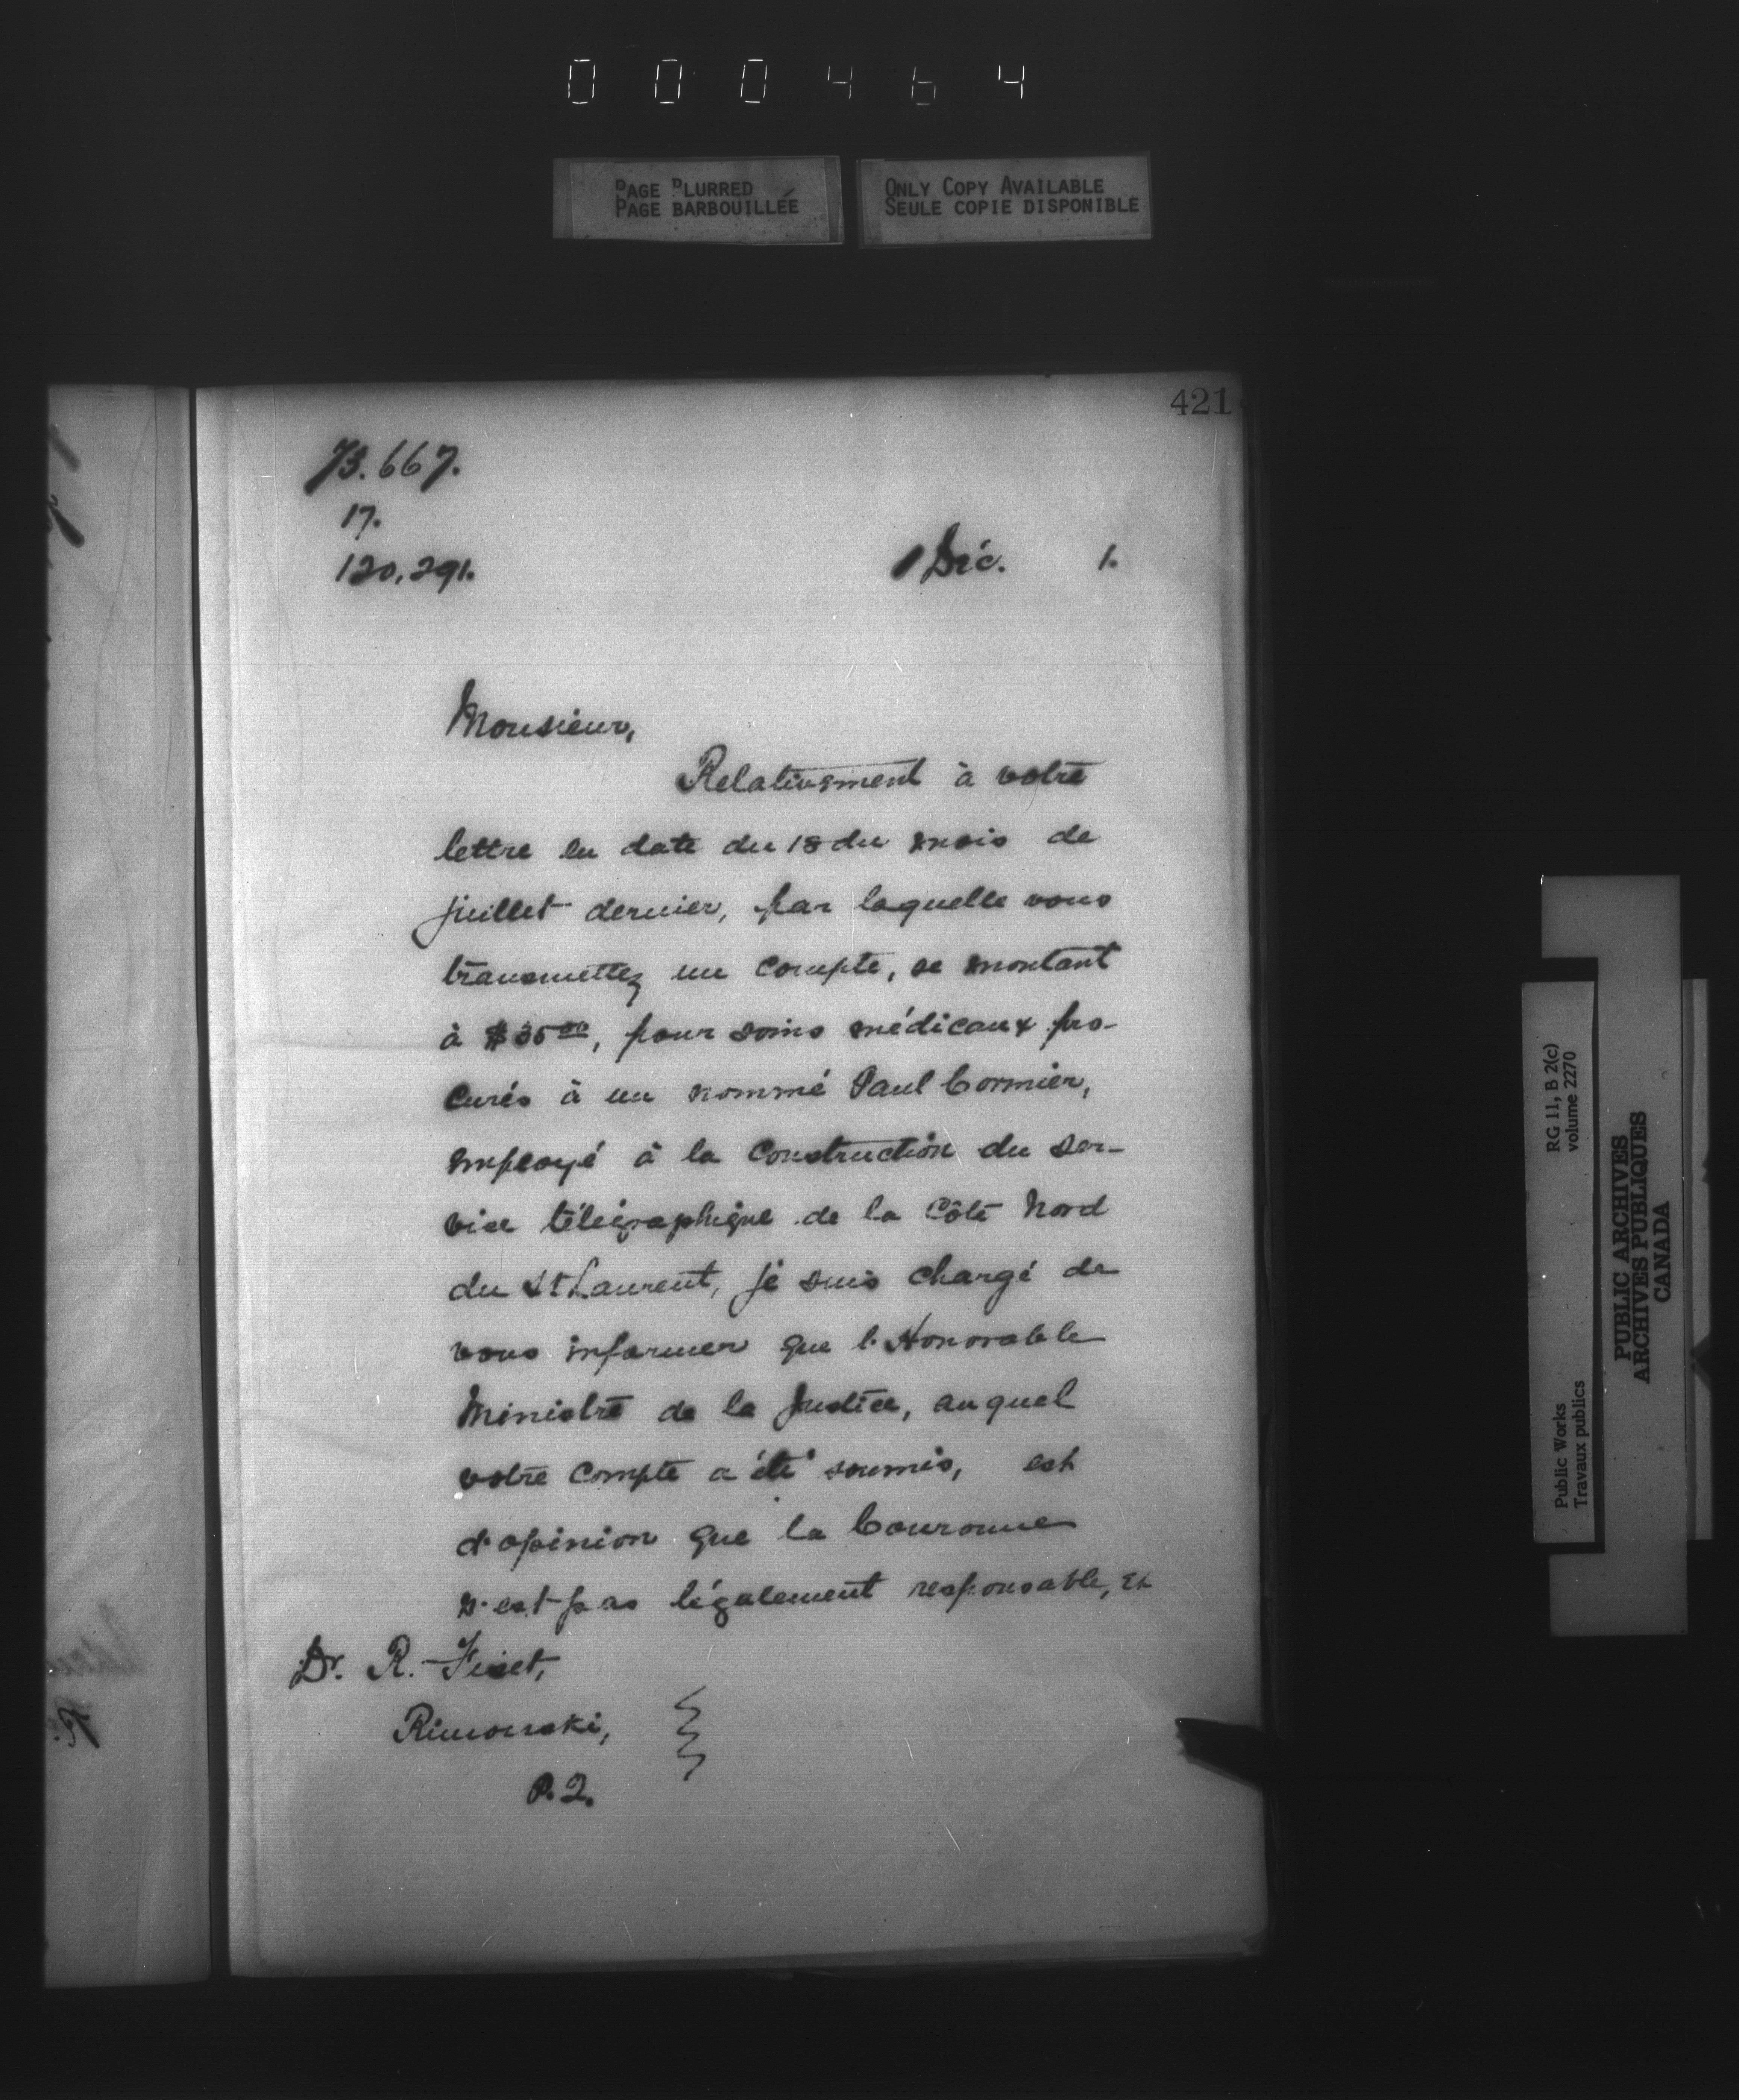 000464
PAGE BLURRED
PAGE BARBOUILLÉE
ONLY COPY AVAILABLE
SEULE COPIE DISPONIBLE
421
73.667.
17.
120,291.
1 Déc. 1.
Monsieur,
Relativement à votre
lettre en date du 18 du mois de
juillet dernier, par laquelle vous
transmettez un compte, se montant
à $35 00, pour soins médicaux pro-
curés à un nommé Paul Cormier,
employé à la construction du ser-
vice télégraphique de la Côte Nord
du St Laurent, je suis chargé de
vous informer que l'Honorable
Ministre de la Justice, auquel
votre compte a été soumis, est
d'opinion que la Couronne
n'est pas légalement responsable, et
Dr. R. Fiset,
Rimouski,
P.Q.
RG 11, B 2(c)
volume 2270
Public Works
Travaux publics
PUBLIC ARCHIVES
ARCHIVES PUBLIQUES
CANADA